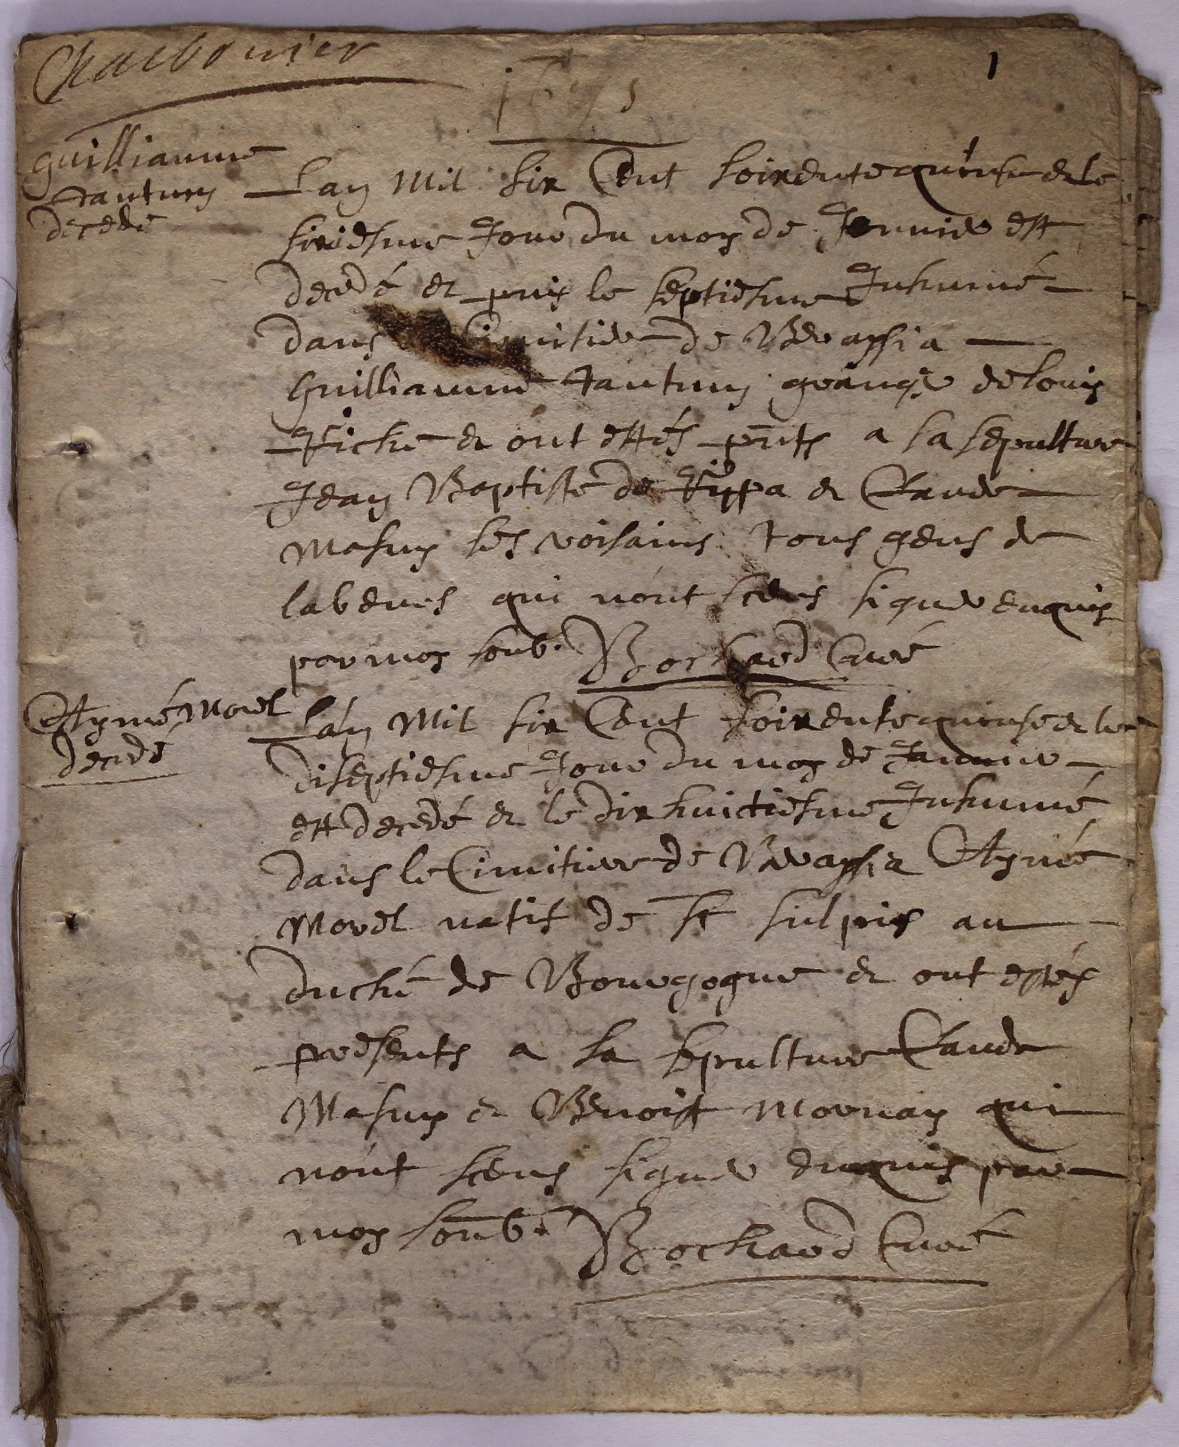 Charbonier
1
1675
Guilliaume
tantury
decedé
Lan Mil six Cent soixentequinse et le
sixiesme Jour du moy de Jenvier est
decedé et puis le septiesme Inhumé
dans Cimitier de Bevassia
Guilliaume tantury granger de louis
Fiché et ont estés pnts a la sepulture
Jean Baptiste de et Claude
Masuy ses voisains tous gens de
labeurs qui nont sceus signer enquis
par moy soub. Bochard Curé
Aymé Morel
decedé
Lan Mil six Cent soixentequinse et le
diseptiesme Jour du moy de Janvier
est decedé et le dixhuictiesme Inhumé
dans le Cimitiere de Bevassia Aymé
Morel natif de St Sulpis au
duché de Bourgogne et ont estés
presents a la sepulture Claude
Masuy et Benoist Mornay qui
nont sceus signer enquis par
moy soub. Bochard Curé